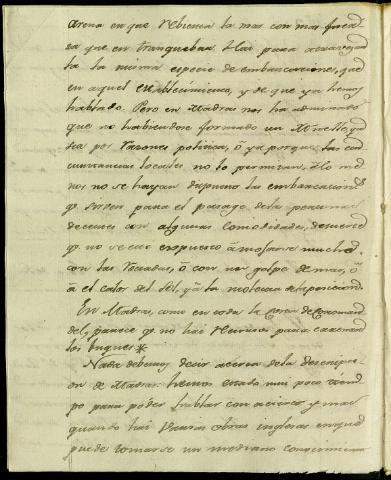 arena en que rebienta la mar con mas fuer
za que en tranquebar. Hai para atravezar
la la misma especie de embarcaciones, que
en aquel establecimiento, y de que ya hemos
hablado. Pero en Madras nos ha admirado
que no habiendose formado un Muelle, ya
sea por razones politicas, ó ya porque las cir
cunstancias locales no lo permitan, a lo me
nos no se hayan dispuesto las embarcaciones
qe. sirven para el pasage de la personas
decentes con algunas Comodidades, de suerte
qe. no se este expuesto á mojarse mucho
con las reventadas, ó con un golpe de mar, ó
á el calor del Sol, y á la molestia de la posicion.
En Madras, como en toda la Costa de Coromań
del, parece qe. no hai recursos para carenar
los buques *
Nada debemos decir acerca de la descripci
on de Madras: hemos estado mui poco tiem
po para poder hablar con acierto, y mas
quando hai varias obras inglesas en que
puede tomarse un mediano conocimiento